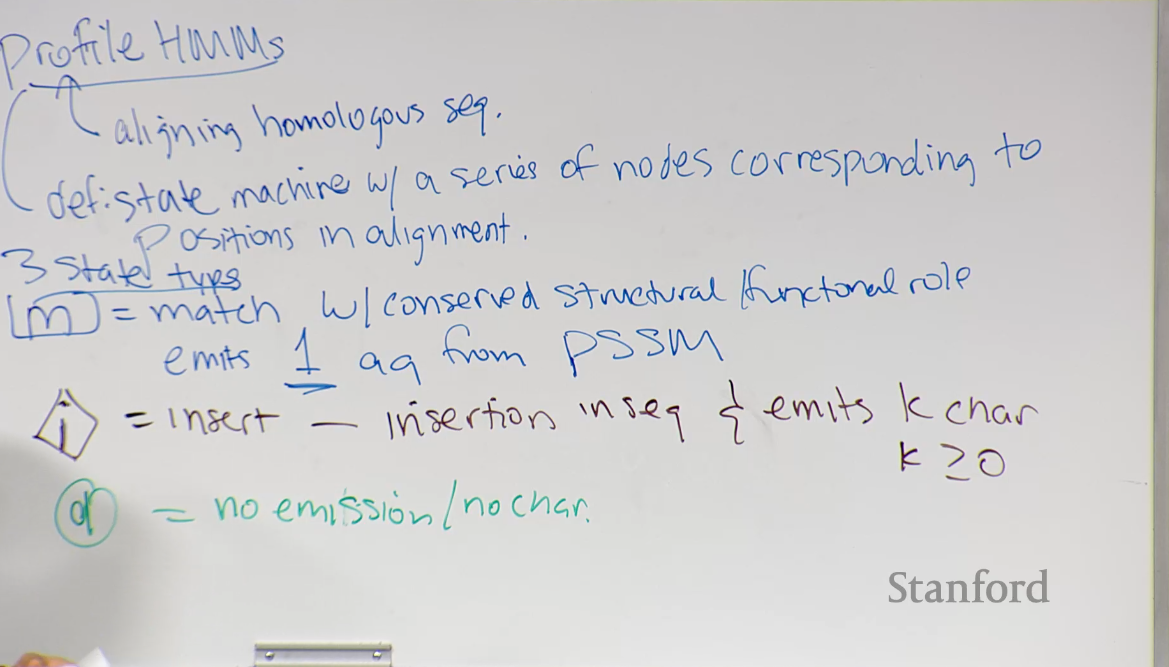 Profile HMMs
aligning homologous seq.
def: state machine w/ a series of nodes corresponding to
positions in alignment.
3 state types
m = match w/ conserved structural/functonal role
emits 1 aa from PSSM
i = insert — insertion in seq & emits k char
k ≥ 0
d = no emission/no char.
Stanford